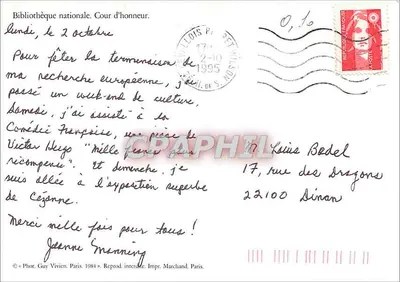 Bibliothèque nationale. Cour d'honneur.
lundi, le 2 octobre
Pour fêter la terminaison de
ma recherche européenne, j'ai
passé un week-end de culture.
Samedi, j'ai assisté à la
Comédie Française, une pièce de
Victor Hugo "Mille francs pour
récompense". Et dimanche, je
suis allée à l'exposition superbe
de Cézanne.
Merci mille fois pour tous!
Jeanne Manning
© • Phot. Guy Vivien. Paris. 1984 • Reprod. interdite. Impr. Marchand. Paris.
2-10
1995
0,10
CPAPHIL
M Louis Badel
17, rue des Dragons
22100 Dinan